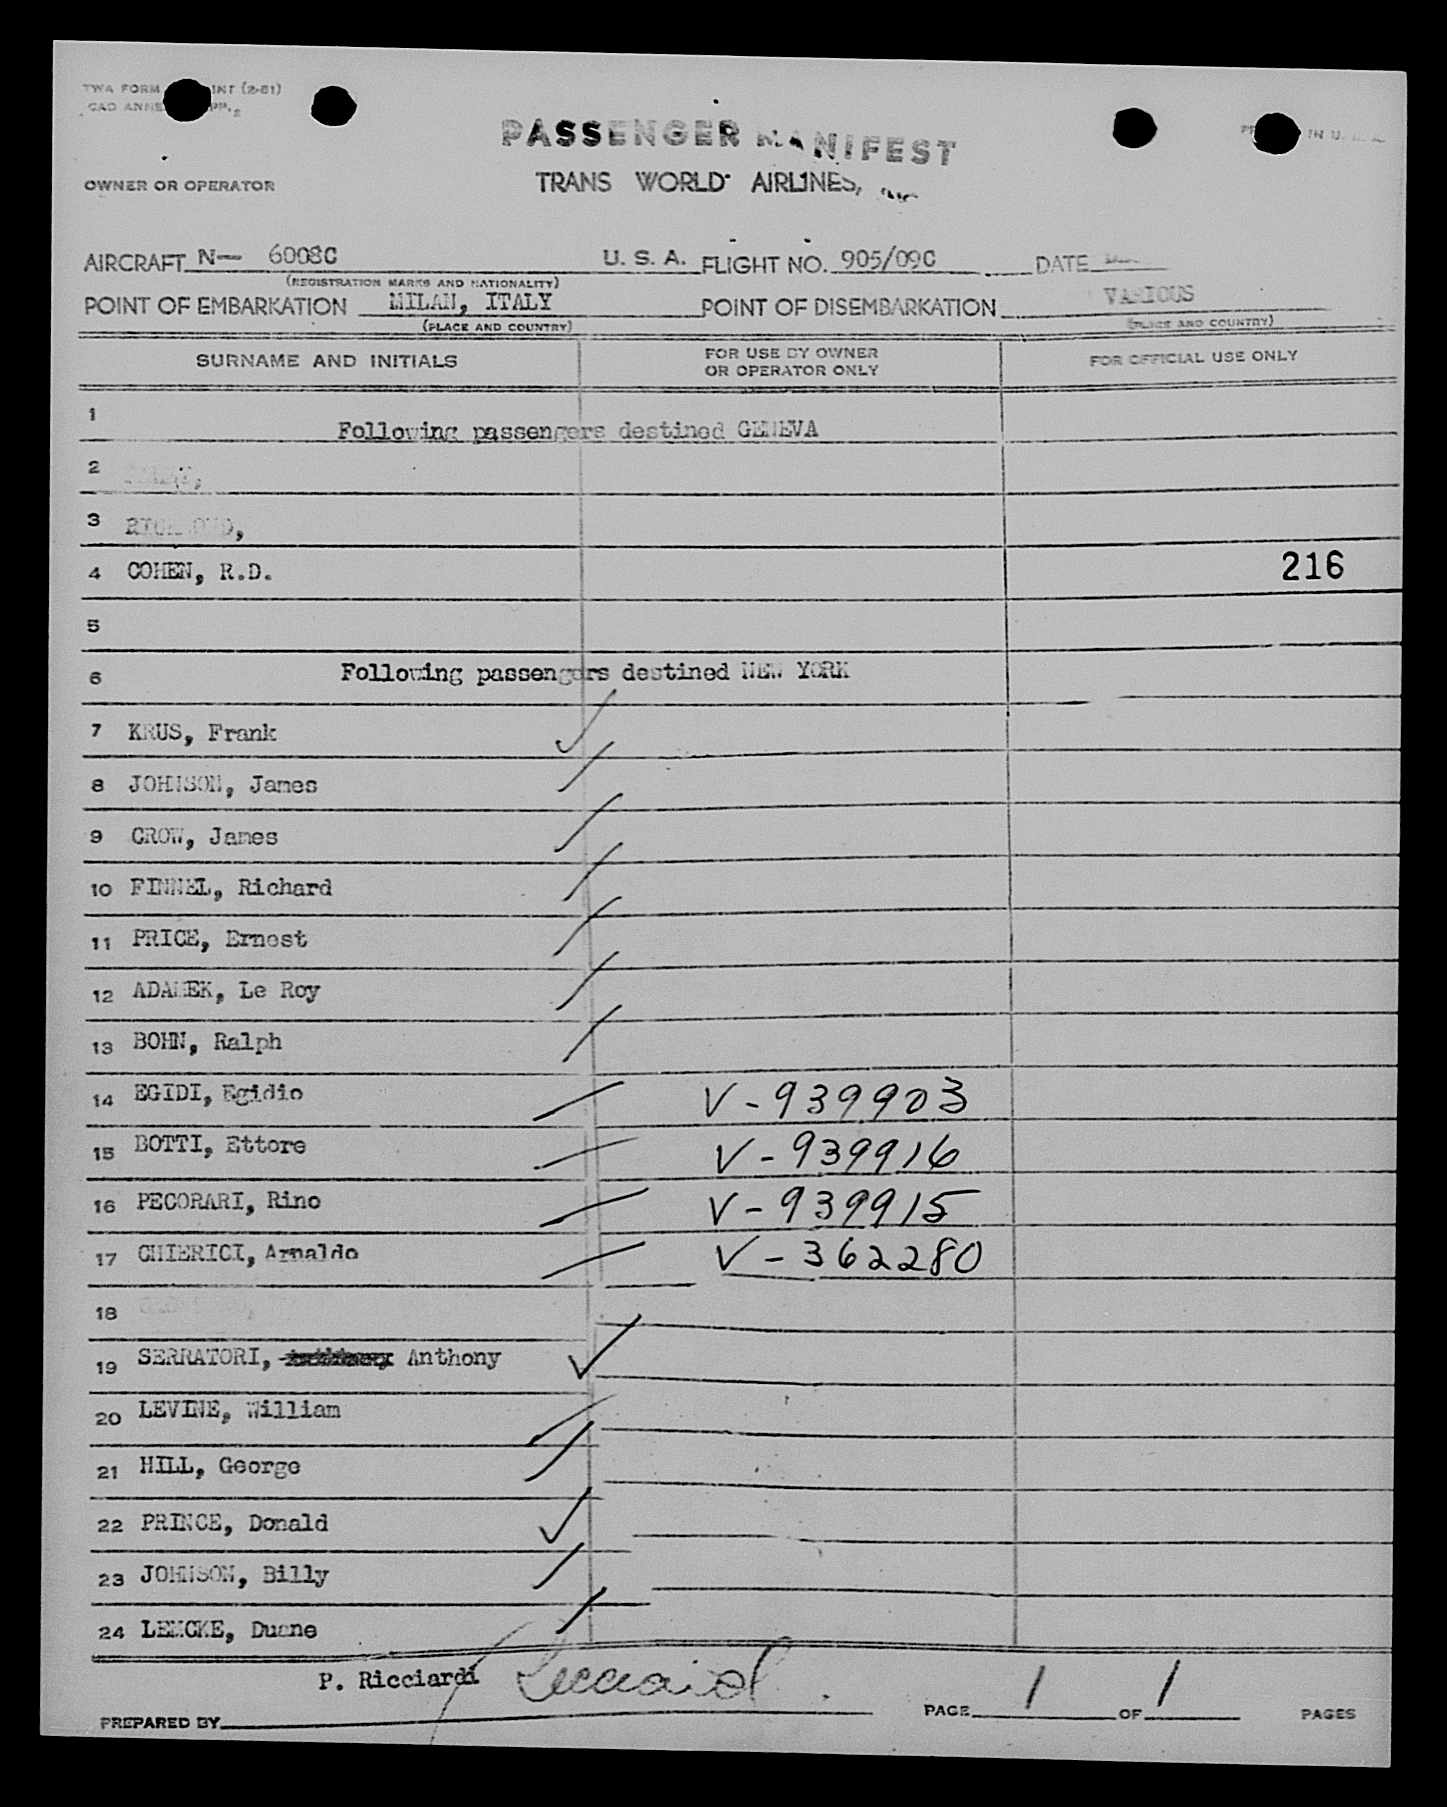 TWA FORM INT (2-51)
CAO ANNE
PASSENGER MANIFEST
IN U.
OWNER OR OPERATOR
TRANS WORLD AIRLINES,
AIRCRAFT N— 6008C U. S. A. FLIGHT NO. 905/09C DATE
(REGISTRATION MARKS AND NATIONALITY)
POINT OF EMBARKATION MILAN, ITALY POINT OF DISEMBARKATION VARIOUS
(PLACE AND COUNTRY) (PLACE AND COUNTRY)
SURNAME AND INITIALS FOR USE BY OWNER OR OPERATOR ONLY FOR OFFICIAL USE ONLY
1 Following passengers destined GENEVA
2
3
4 COHEN, R.D. 216
5
6 Following passengers destined NEW YORK
7 KRUS, Frank
8 JOHNSON, James
9 CROW, James
10 FINNEL, Richard
11 PRICE, Ernest
12 ADAMEK, Le Roy
13 BOHN, Ralph
14 EGIDI, Egidio V-939903
15 BOTTI, Ettore V-939916
16 PECORARI, Rino V-939915
17 CHIERICI, Arnaldo V-362280
18
19 SERRATORI, Anthony
20 LEVINE, William
21 HILL, George
22 PRINCE, Donald
23 JOHNSON, Billy
24 LEMCKE, Duane
P. Ricciardi
PREPARED BY PAGE 1 OF 1 PAGES